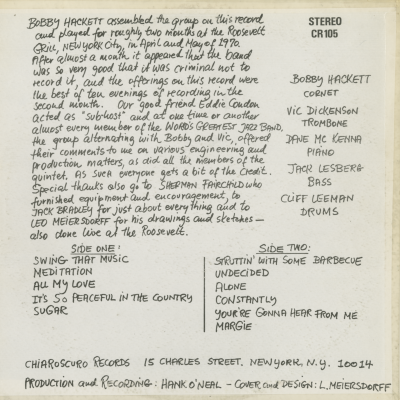 BOBBY HACKETT assembled the group on this record
and played for roughly two months at the Roosevelt
GRILL, NEW YORK CITY, in April and May of 1970.
After almost a month it appeared that the band
was so very good that it was criminal not to
record it, and the offerings on this record were
the best of ten evenings of recording in the
second month. Our good friend Eddie Condon
acted as "sub-host" and at one time or another
almost every member of the WORLDS GREATEST JAZZ BAND,
the group alternating with Bobby and Vic, offered
their comments to me on various engineering and
production matters, as did all the members of the
quintet. As such everyone gets a bit of the credit.
Special thanks also go to SHERMAN FAIRCHILD who
furnished equipment and encouragement, to
JACK BRADLEY for just about everything and to
LEO MEIERSDORFF for his drawings and sketches —
also done live at the Roosevelt.
STEREO
CR105
BOBBY HACKETT
CORNET
VIC DICKENSON
TROMBONE
DAVE MC KENNA
PIANO
JACK LESBERG
BASS
CLIFF LEEMAN
DRUMS
SIDE ONE:
SWING THAT MUSIC
MEDITATION
ALL MY LOVE
IT'S SO PEACEFUL IN THE COUNTRY
SUGAR
SIDE TWO:
STRUTTIN' WITH SOME BARBECUE
UNDECIDED
ALONE
CONSTANTLY
YOU'RE GONNA HEAR FROM ME
MARGIE
CHIAROSCURO RECORDS 15 CHARLES STREET, NEW YORK, N.Y. 10014
PRODUCTION and RECORDING: HANK O'NEAL - COVER and DESIGN: L. MEIERSDORFF